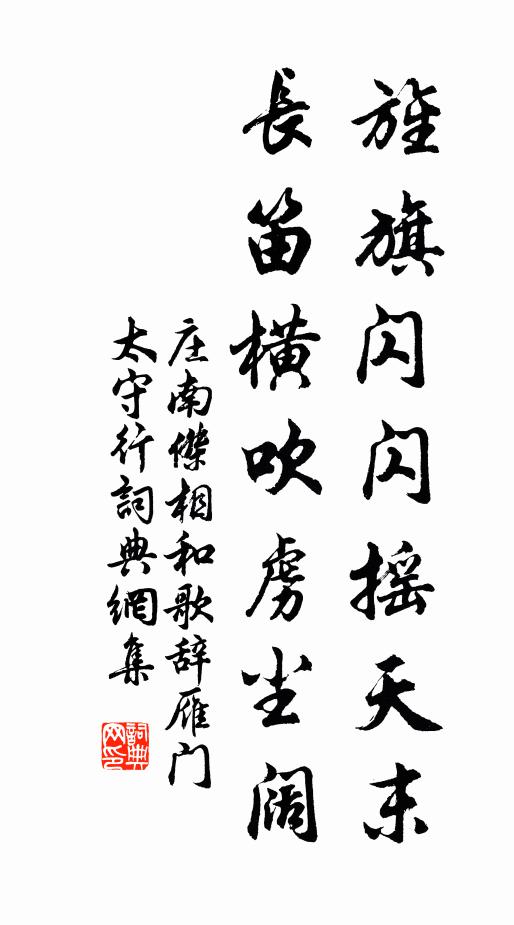 旌旗闪闪摇天末
長笛橫吹虜尘阔
庄南傑相和歌辞雁门
太守行詞典網集
詞典网印